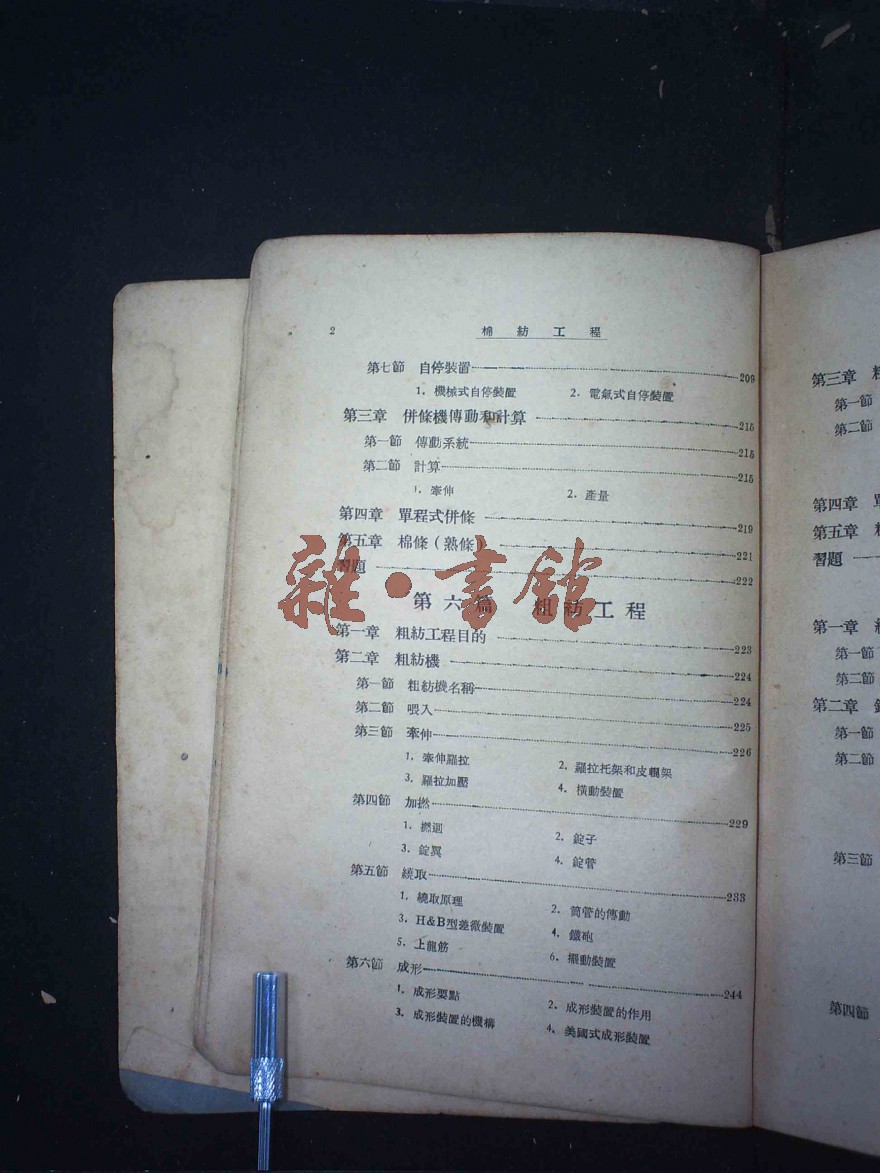 2 棉紡工程
第七節 自停裝置 209
1. 機械式自停裝置 2. 電氣式自停裝置
第三章 併條機傳動和計算 215
第一節 傳動系統 215
第二節 計算 215
1. 牽伸 2. 產量
第四章 單程式併條 219
第五章 棉條（熟條） 221
習題 222
雜·書館
第六篇 粗紡工程
第一章 粗紡工程目的 223
第二章 粗紡機 224
第一節 粗紡機名稱 224
第二節 喂入 225
第三節 牽伸 226
1. 牽伸羅拉 2. 羅拉托架和皮輥架
3. 羅拉加壓 4. 橫動裝置
第四節 加撚 229
1. 撚迴 2. 錠子
3. 錠翼 4. 錠管
第五節 繞取 233
1. 繞取原理 2. 筒管的傳動
3. H&B型差微裝置 4. 鐵砲
5. 上龍筋 6. 擺動裝置
第六節 成形 244
1. 成形要點 2. 成形裝置的作用
3. 成形裝置的機構 4. 美國式成形裝置
第三章
第一節
第二節
第四章
第五章
習題
第一章
第一節
第二節
第二章
第一節
第二節
第三節
第四節